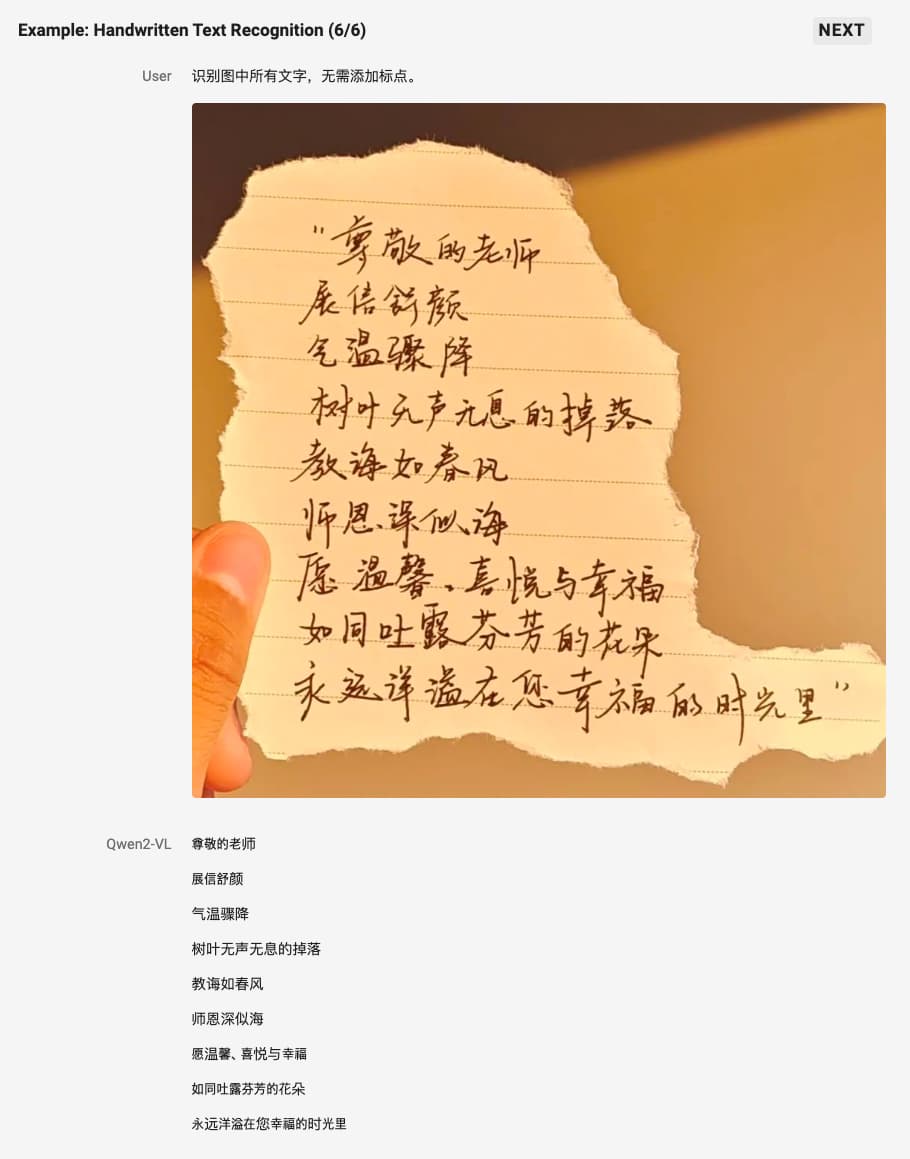 Example: Handwritten Text Recognition (6/6)
NEXT
User
识别图中所有文字，无需添加标点。
"尊敬的老师
展信舒颜
气温骤降
树叶无声无息的掉落
教诲如春风
师恩深似海
愿温馨、喜悦与幸福
如同吐露芬芳的花朵
永远洋溢在您幸福的时光里"
Qwen2-VL
尊敬的老师
展信舒颜
气温骤降
树叶无声无息的掉落
教诲如春风
师恩深似海
愿温馨、喜悦与幸福
如同吐露芬芳的花朵
永远洋溢在您幸福的时光里